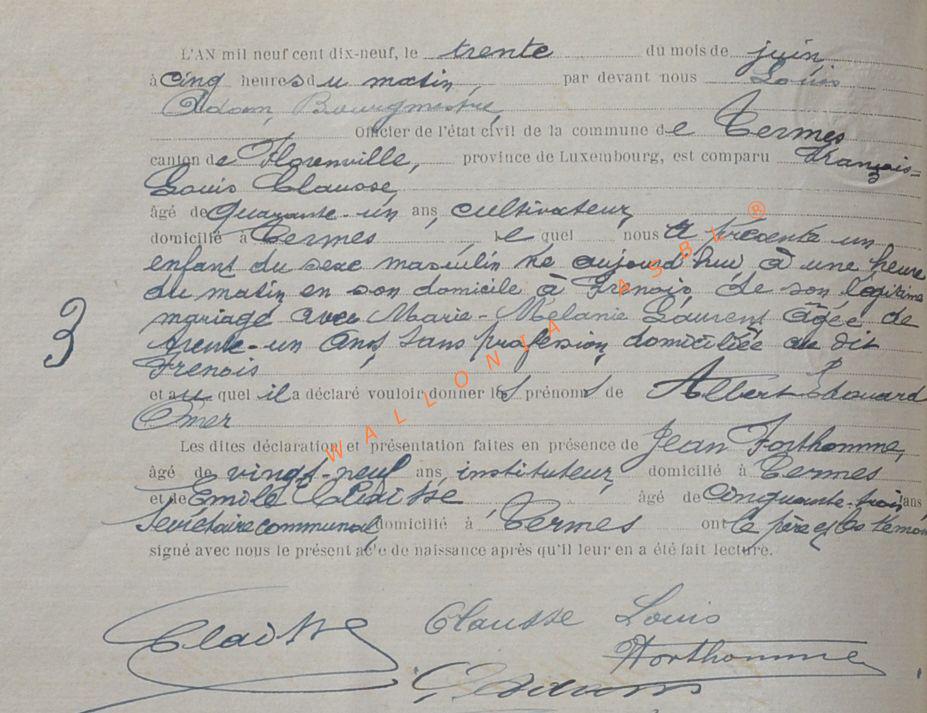 L'AN mil neuf cent dix-neuf, le trente du mois de juin,
à cinq heures du matin par devant nous Louis
Adam, Bourgmestre,
Officier de l'état civil de la commune de Termes
canton de Florenville, province de Luxembourg, est comparu François-
Louis Clausse,
âgé de quarante-un ans, cultivateur,
domicilié à Termes, lequel nous a présenté un
enfant du sexe masculin né aujourd'hui, à une heure
du matin en son domicile à Frenois, de son légitime
mariage avec Marie-Mélanie Laurent âgée de
trente-un ans, sans profession, domiciliée au dit
Frenois
et auquel il a déclaré vouloir donner les prénoms de Albert Edouard
Omer
Les dites déclaration et présentation faites en présence de Jean Forthomme,
âgé de vingt-neuf ans, instituteur, domicilié à Termes
3
et de Emile Claisse âgé de cinquante-trois ans
secrétaire communal, domicilié à Termes ont le père et les témoins
signé avec nous le présent acte de naissance après qu'il leur en a été fait lecture.
WALLONIA ASBL ®
Claisse Clausse Louis
JForthomme
Adam